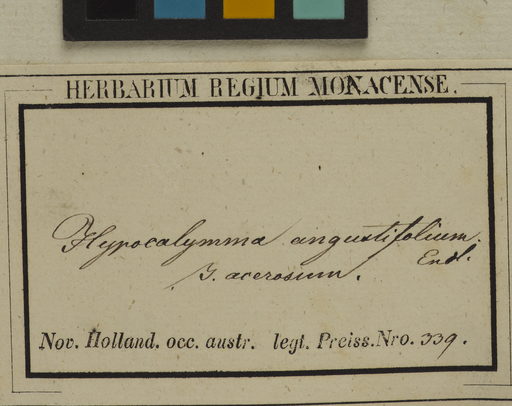 HERBARIUM REGIUM MONACENSE.
Hypocalymma angustifolium.
Endl.
γ. acerosum.
Nov. Holland. occ. austr. legt. Preiss. Nro. 339.